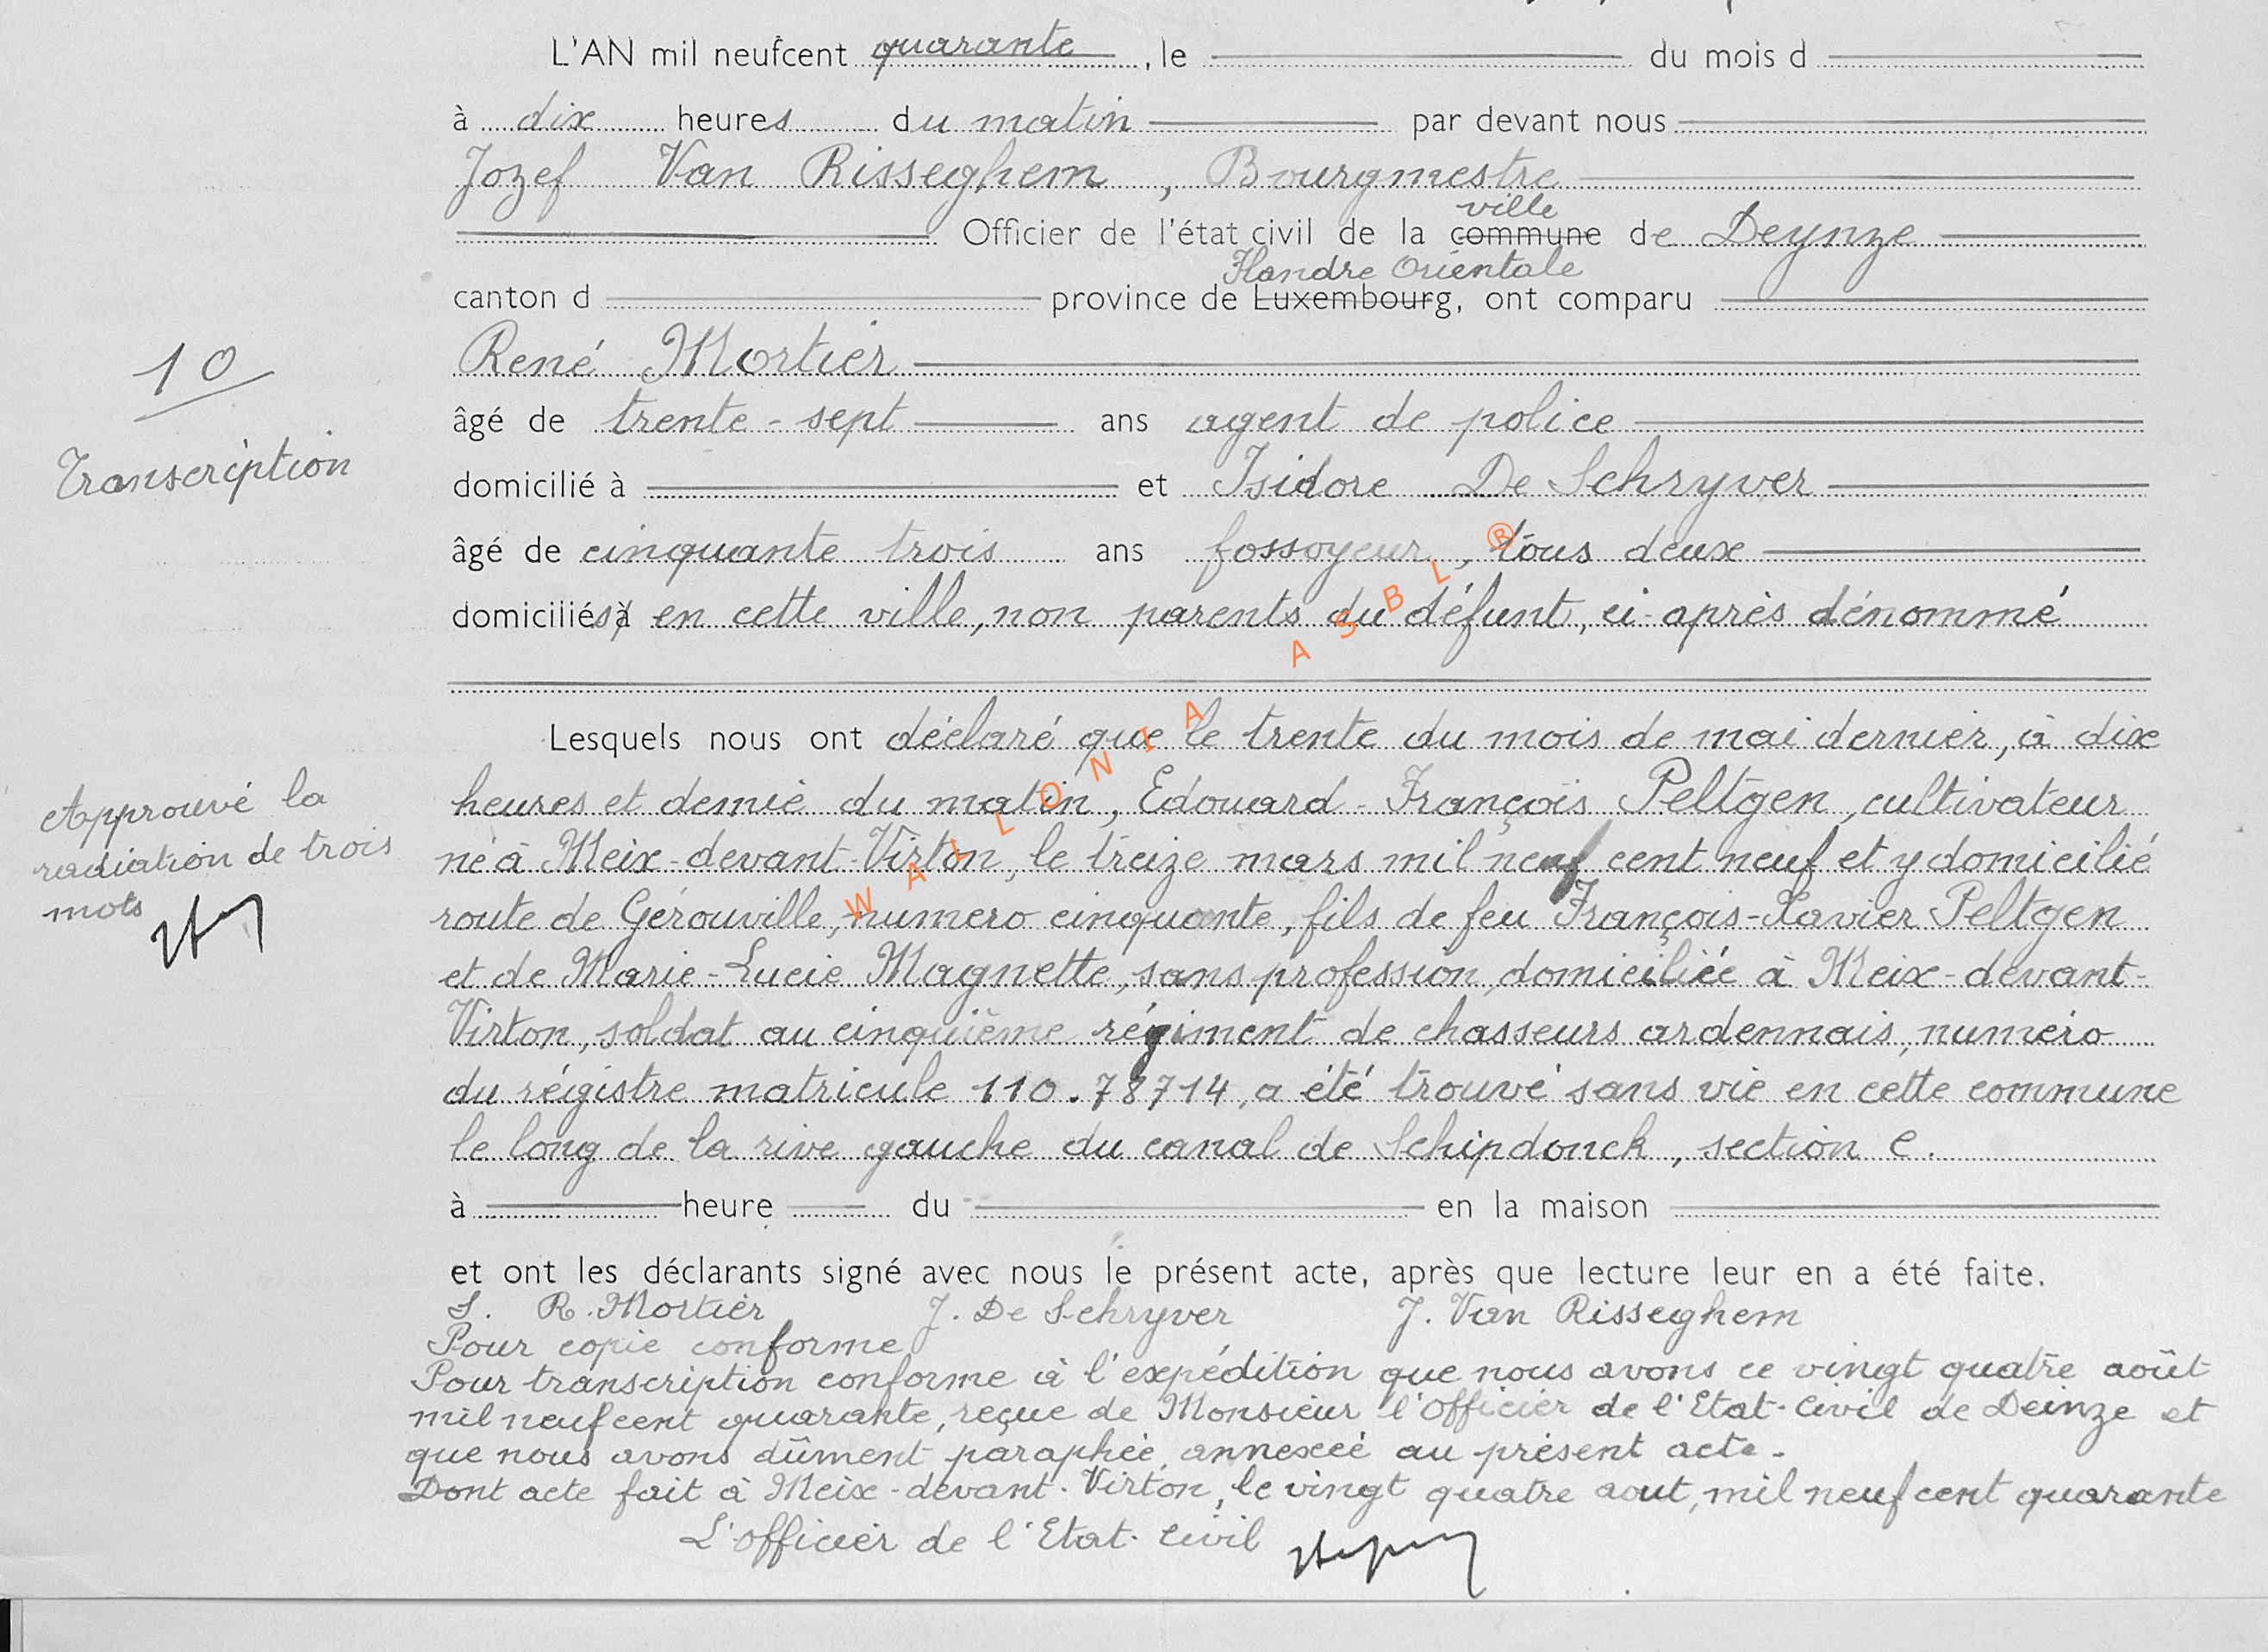 L'AN mil neufcent quarante, le du mois d
à dix heures du matin par devant nous
Jozef Van Risseghem, Bourgmestre
ville
Officier de l'état civil de la commune de Deynze
Flandre Orientale
canton d province de Luxembourg, ont comparu
10
René Mortier
âgé de trente-sept ans agent de police
Transcription
domicilié à et Isidore De Schryver
âgé de cinquante trois ans fossoyeur, tous deux
domiciliés à en cette ville, non parents du défunt, ci-après dénommé
Lesquels nous ont déclaré que le trente du mois de mai dernier, à dix
heures et demie du matin, Edouard-François Peltgen, cultivateur
né à Meix-devant-Virton, le treize mars mil neuf cent neuf et y domicilié
route de Gérouville, numéro cinquante, fils de feu François-Xavier Peltgen
et de Marie-Lucie Magnette, sans profession, domiciliée à Meix-devant-
Virton, soldat au cinquième régiment de chasseurs ardennais, numéro
du régistre matricule 110.78714, a été trouvé sans vie en cette commune
le long de la rive gauche du canal de Schipdonck, section C.
Approuvé la
radiation de trois
mots
à heure du en la maison
et ont les déclarants signé avec nous le présent acte, après que lecture leur en a été faite.
S. R. Mortier J. De Schryver J. Van Risseghem
Pour copie conforme
Pour transcription conforme à l'expédition que nous avons ce vingt quatre août
mil neufcent quarante, reçue de Monsieur l'Officier de l'Etat-Civil de Deinze et
que nous avons dûment paraphée, annexée au présent acte.
Dont acte fait à Meix-devant-Virton, le vingt quatre aout, mil neuf cent quarante
L'officier de l'Etat-Civil
WALLONIA ASBL ®